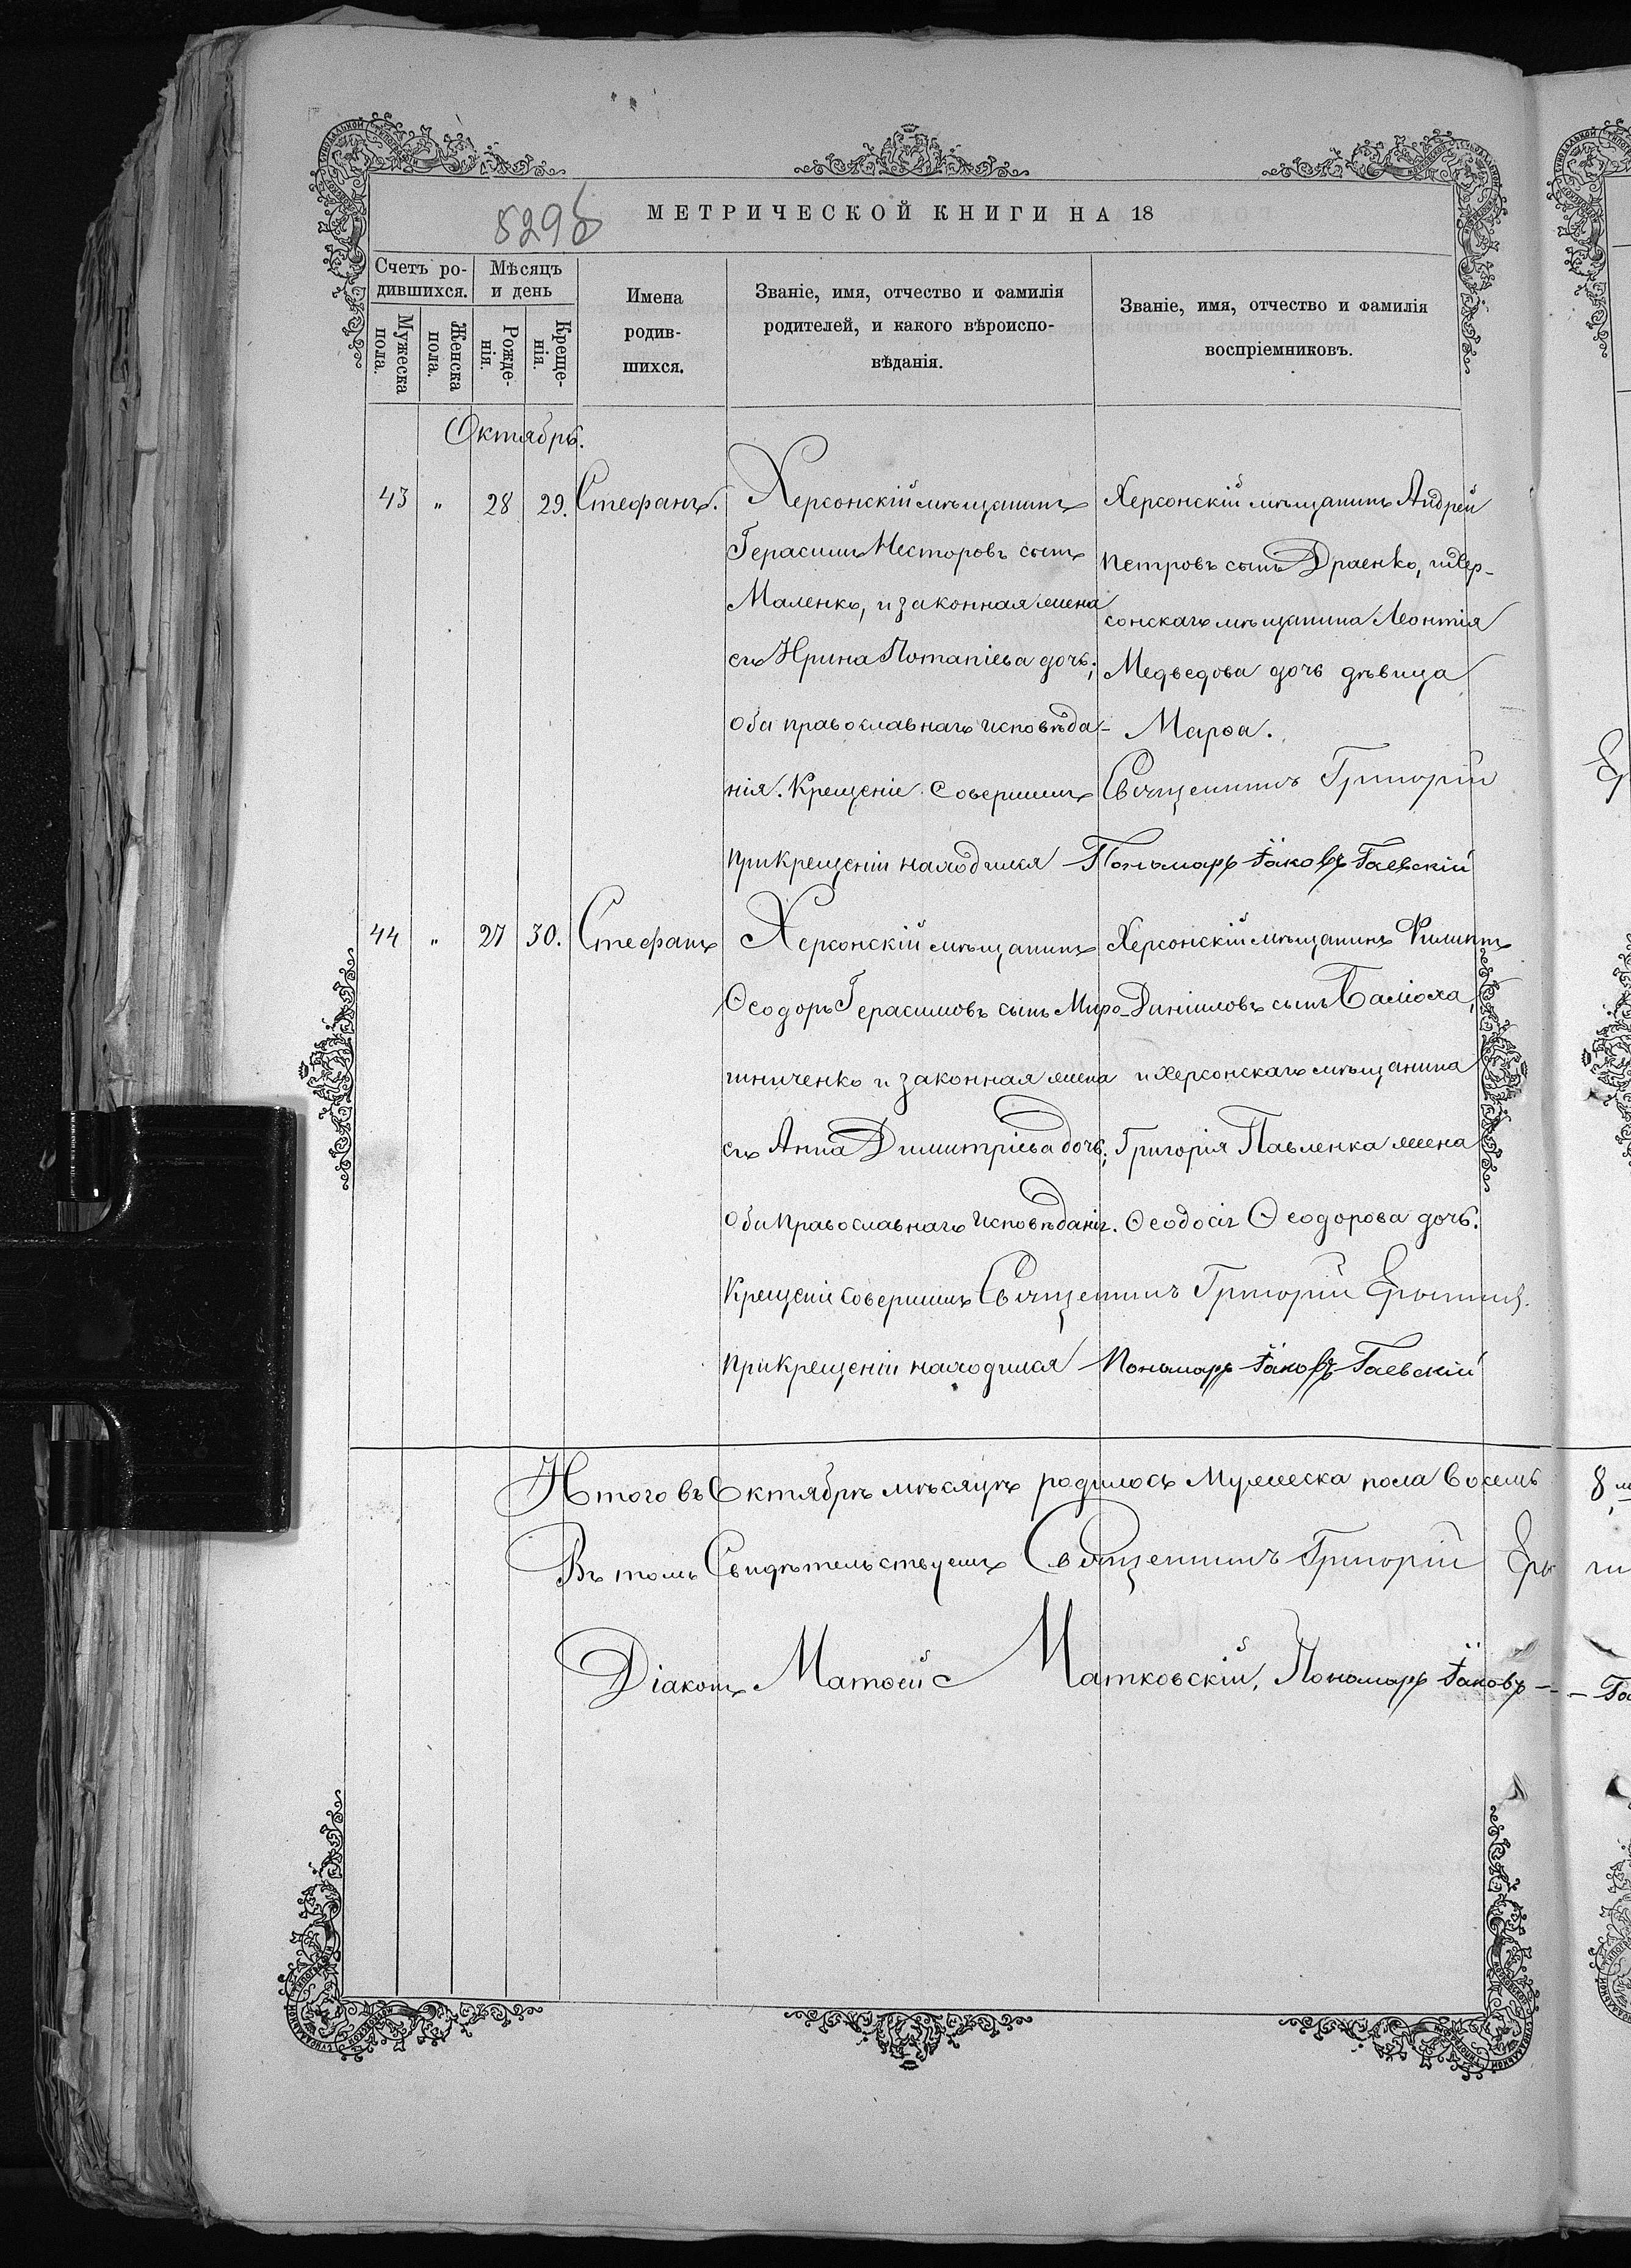 529б
МЕТРИЧЕСКОЙ КНИГИ НА 18
Счетъ ро-
дившихся.
Мѣсяцъ
и день
Мужеска
пола.
Женска
пола.
Рожде-
нія.
Креще-
нія.
Имена
родив-
шихся.
Званіе, имя, отчество и фамилія
родителей, и какого вѣроиспо-
вѣданія.
Званіе, имя, отчество и фамилія
воспріемниковъ.
Октябрь.
43 " 28 29. Стефанъ.
Херсонскій мѣщанинъ
Герасимъ Несторовъ сынъ
Маленко, и законная жена
его Ирина Потапіева дочь;
оба православнаго исповѣда-
нія. Крещеніе совершилъ Священникъ Григорій
При крещеніи находился Пономарь Іаковъ Гаевскій
Херсонскій мѣщанинъ Андрей
Петровъ сынъ Драенко, и Хер-
сонскаго мѣщанина Леонтія
Медведова дочь дѣвица
Марѳа.
44 " 27 30. Стефанъ
Херсонскій мѣщанинъ
Ѳеодоръ Герасимовъ сынъ Миро-
шниченко и законная жена
его Анна Димитріева дочь;
оба Православнаго исповѣданія.
Крещеніе совершилъ Священникъ Григорій
При крещеніи находился Пономарь Іаковъ Гаевскій
Херсонскій мѣщанинъ Филиппъ
сынъ
и херсонскаго мѣщанина
Григорія Павленка жена
Ѳеодосія Ѳеодорова дочь.
Итого въ Октябрѣ мѣсяцѣ родилось Мужеска пола восемь 8
Въ томъ Свидѣтельствуемъ Священникъ Григорій
Діаконъ Матѳей Матковскій, Пономарь Іаковъ